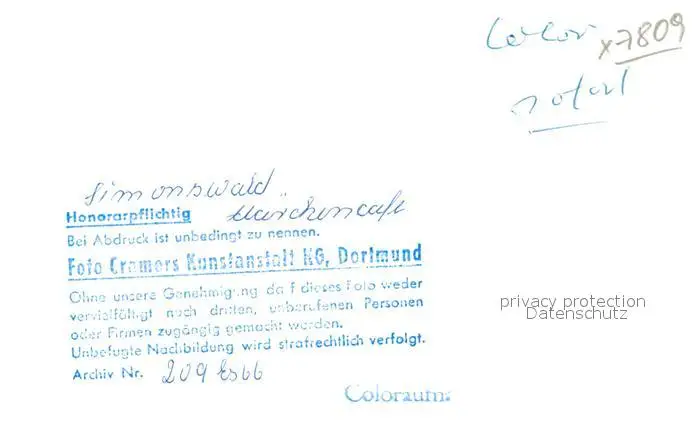 Color x7809
sofort
Simonswald
Honorarpflichtig Märchencafe
Bei Abdruck ist unbedingt zu nennen.
Foto Cramers Kunstanstalt KG, Dortmund
Ohne unsere Genehmigung darf dieses Foto weder
vervielfältigt noch dritten, unberufenen Personen
oder Firmen zugängig gemacht werden.
Unbefugte Nachbildung wird strafrechtlich verfolgt.
Archiv Nr. 209 Es66
privacy protection
Datenschutz